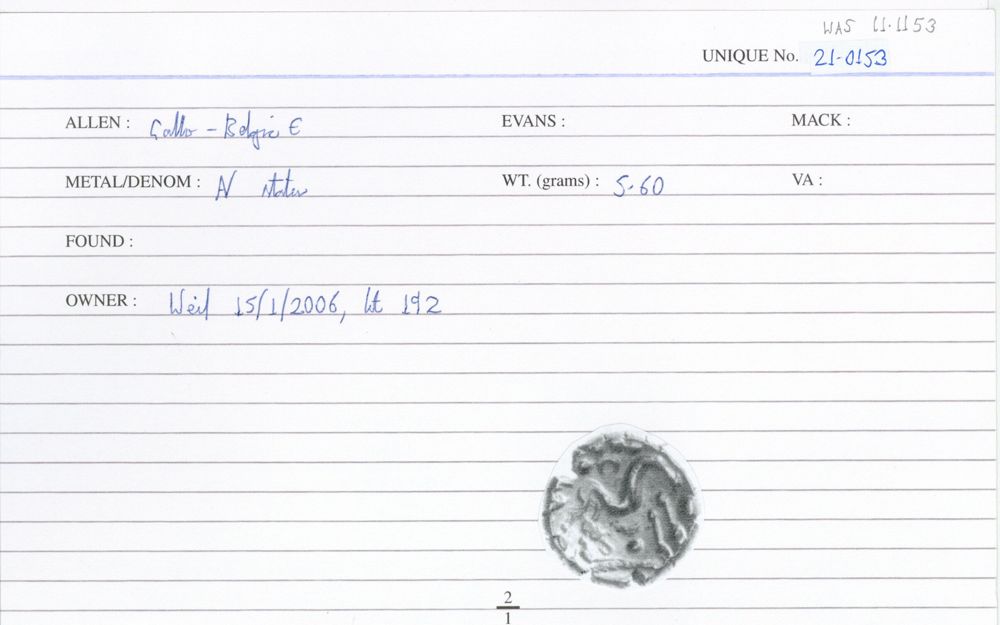 WAS 11.1153
UNIQUE No. 21-0153
ALLEN : Gallo - Belgic E EVANS : MACK :
METAL/DENOM : AV stater WT. (grams) : 5.60 VA :
FOUND :
OWNER : Weil 15/1/2006, lot 192
2
1